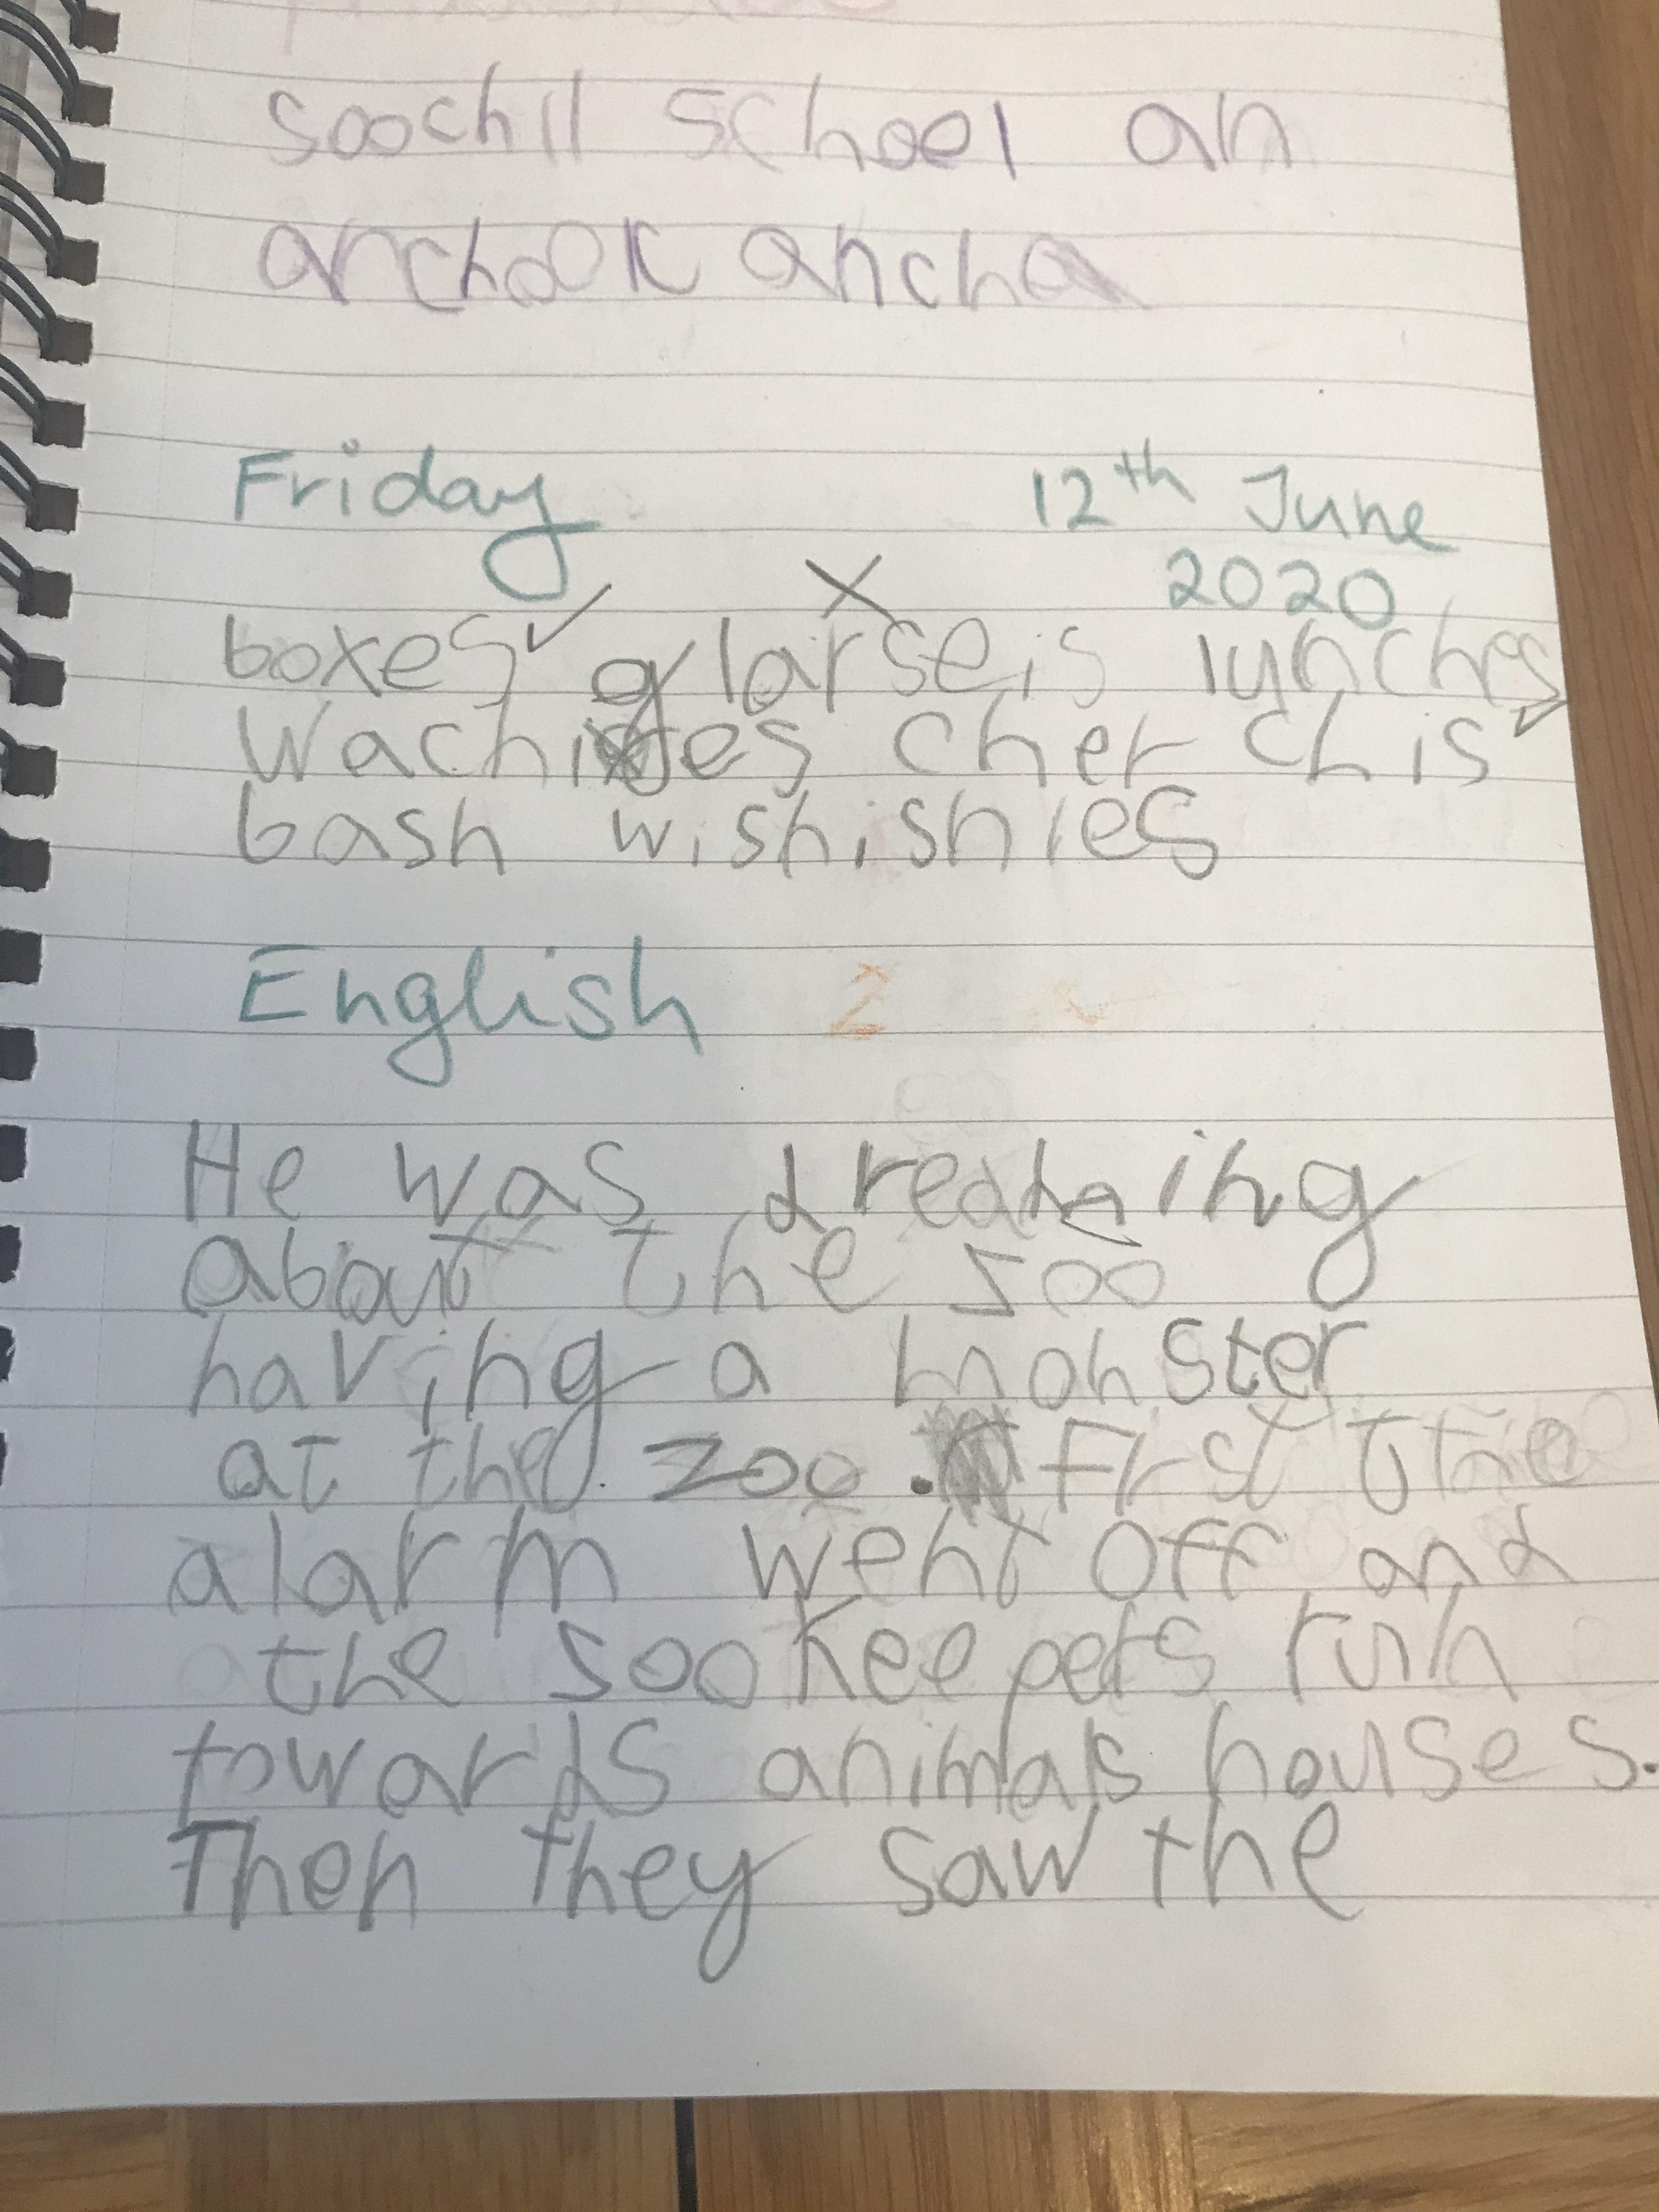 soochll school an
anchook ancha
Friday 12th June
2020
boxes glarseis lunches
wachies cherchis
bash wishishies
English 2
He was dreaming
about the soo
having a monster
at the zoo. First the
alarm went off and
the sookeepers run
towards animals houses.
Then they saw the